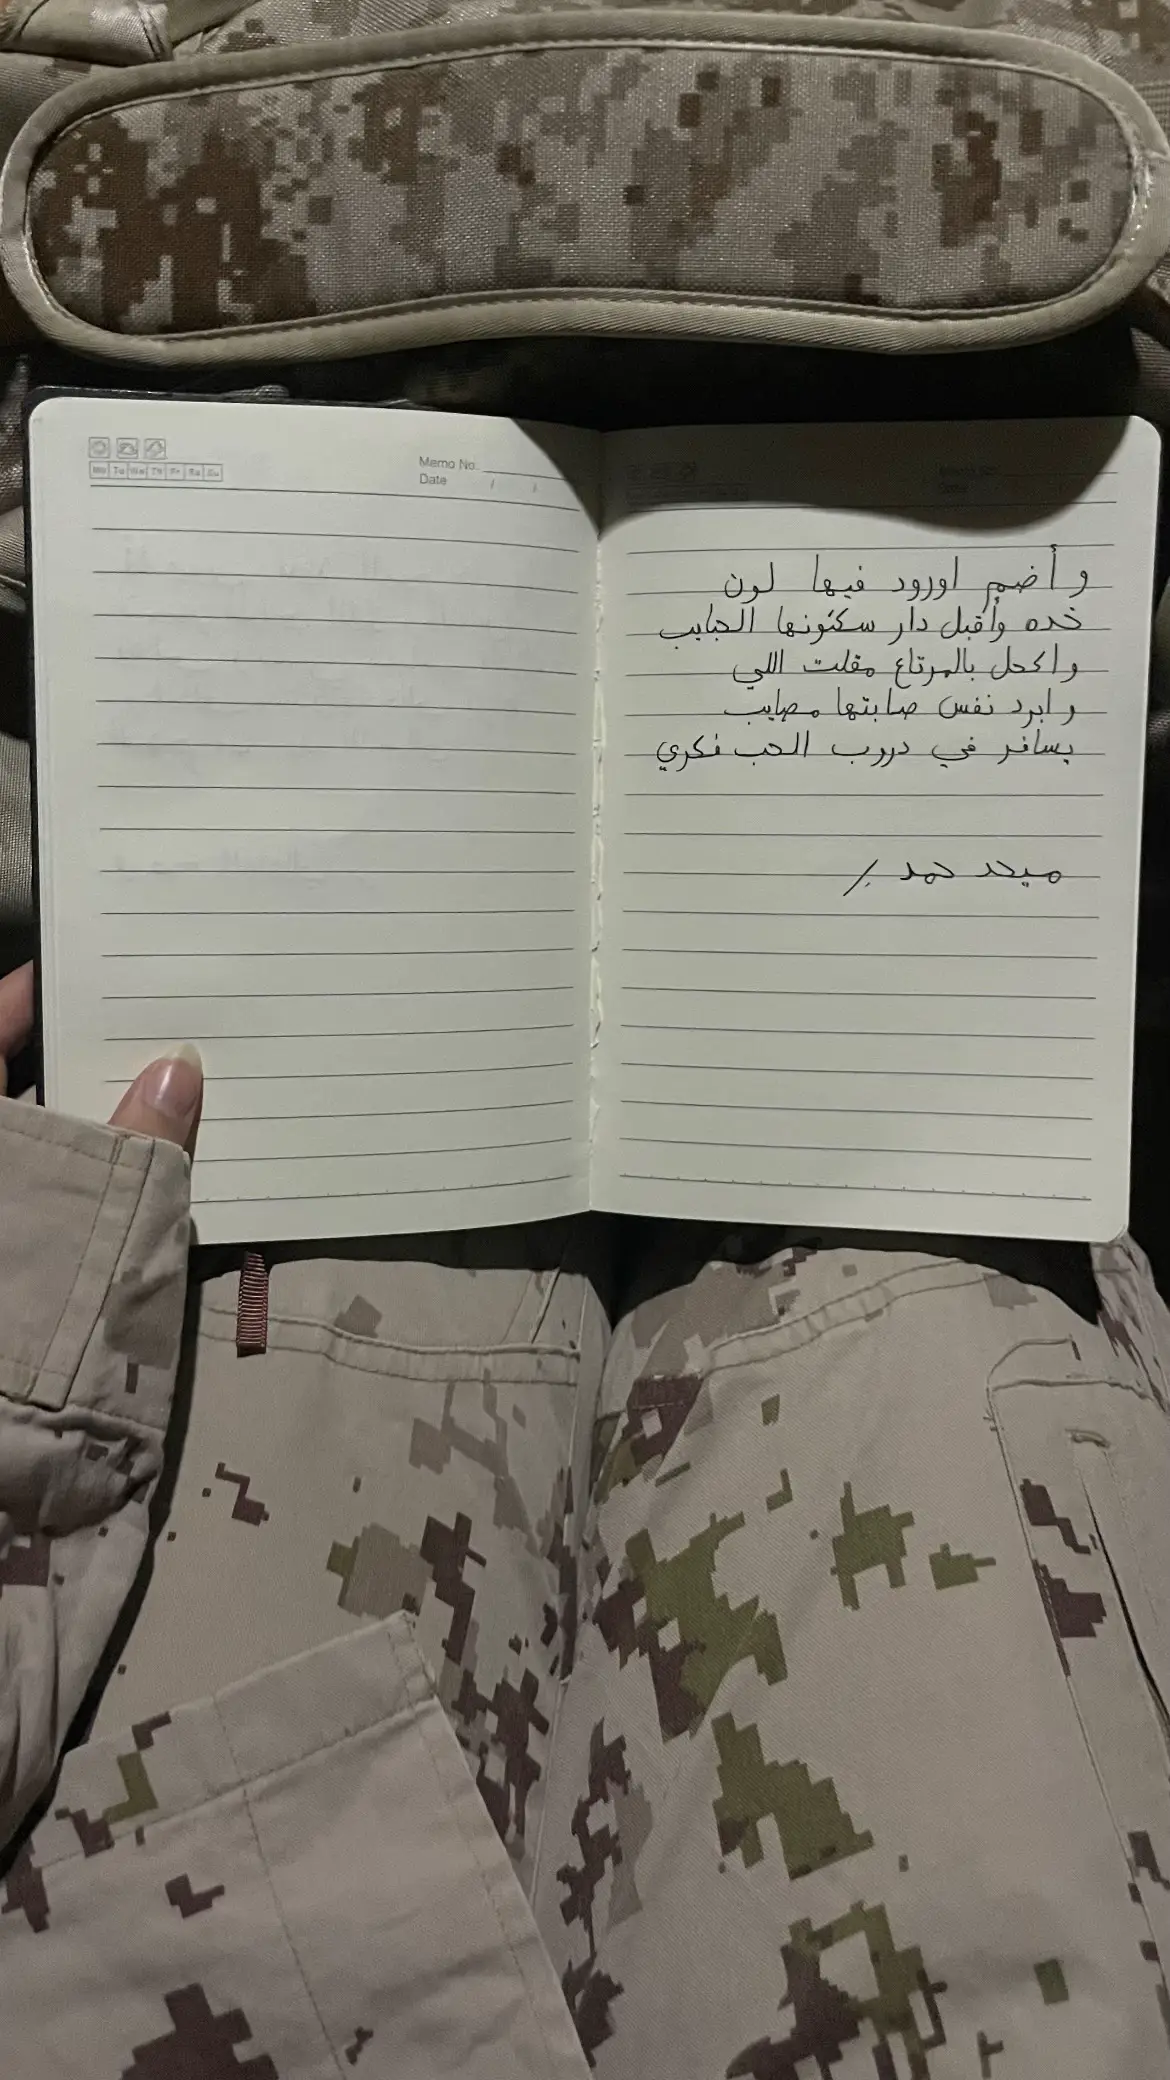 Memo No.
Date / /
Mo Tu We Th Fr Sa Su
و أضم اورود فيها لون
خده وأقبل دار سكنونها الحبايب
واكحل بالمرتاع مقلت اللي
و ابرد نفس صابتها مصايب
يسافر في دروب الحب فكري
ميحد حمد /